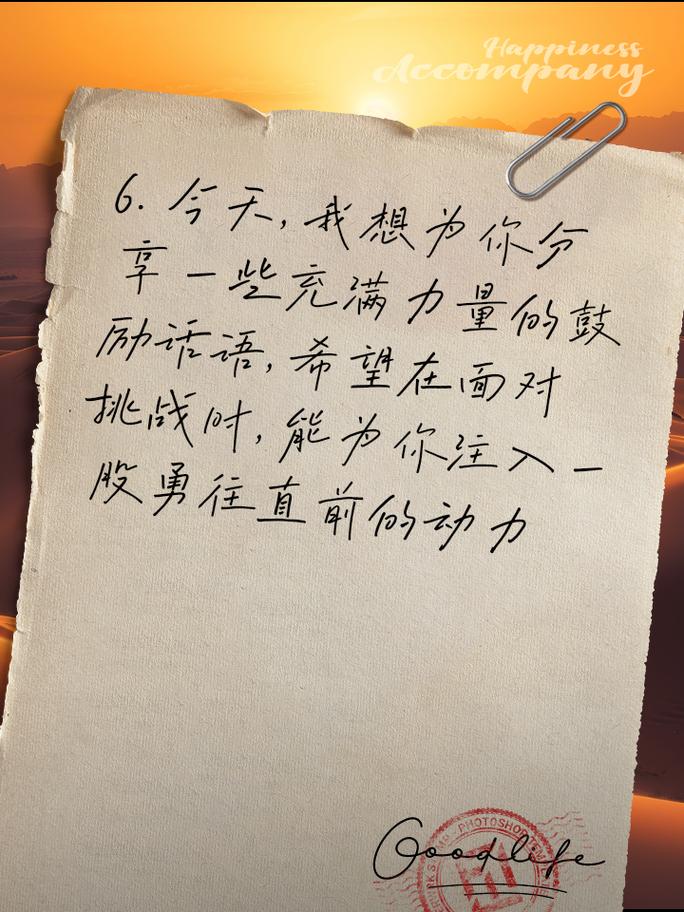 Happiness
Accompany
6. 今天,我想为你分
享一些充满力量的鼓
励话语,希望在面对
挑战时,能为你注入一
股勇往直前的动力
PHOTOSHOP
Goodlife